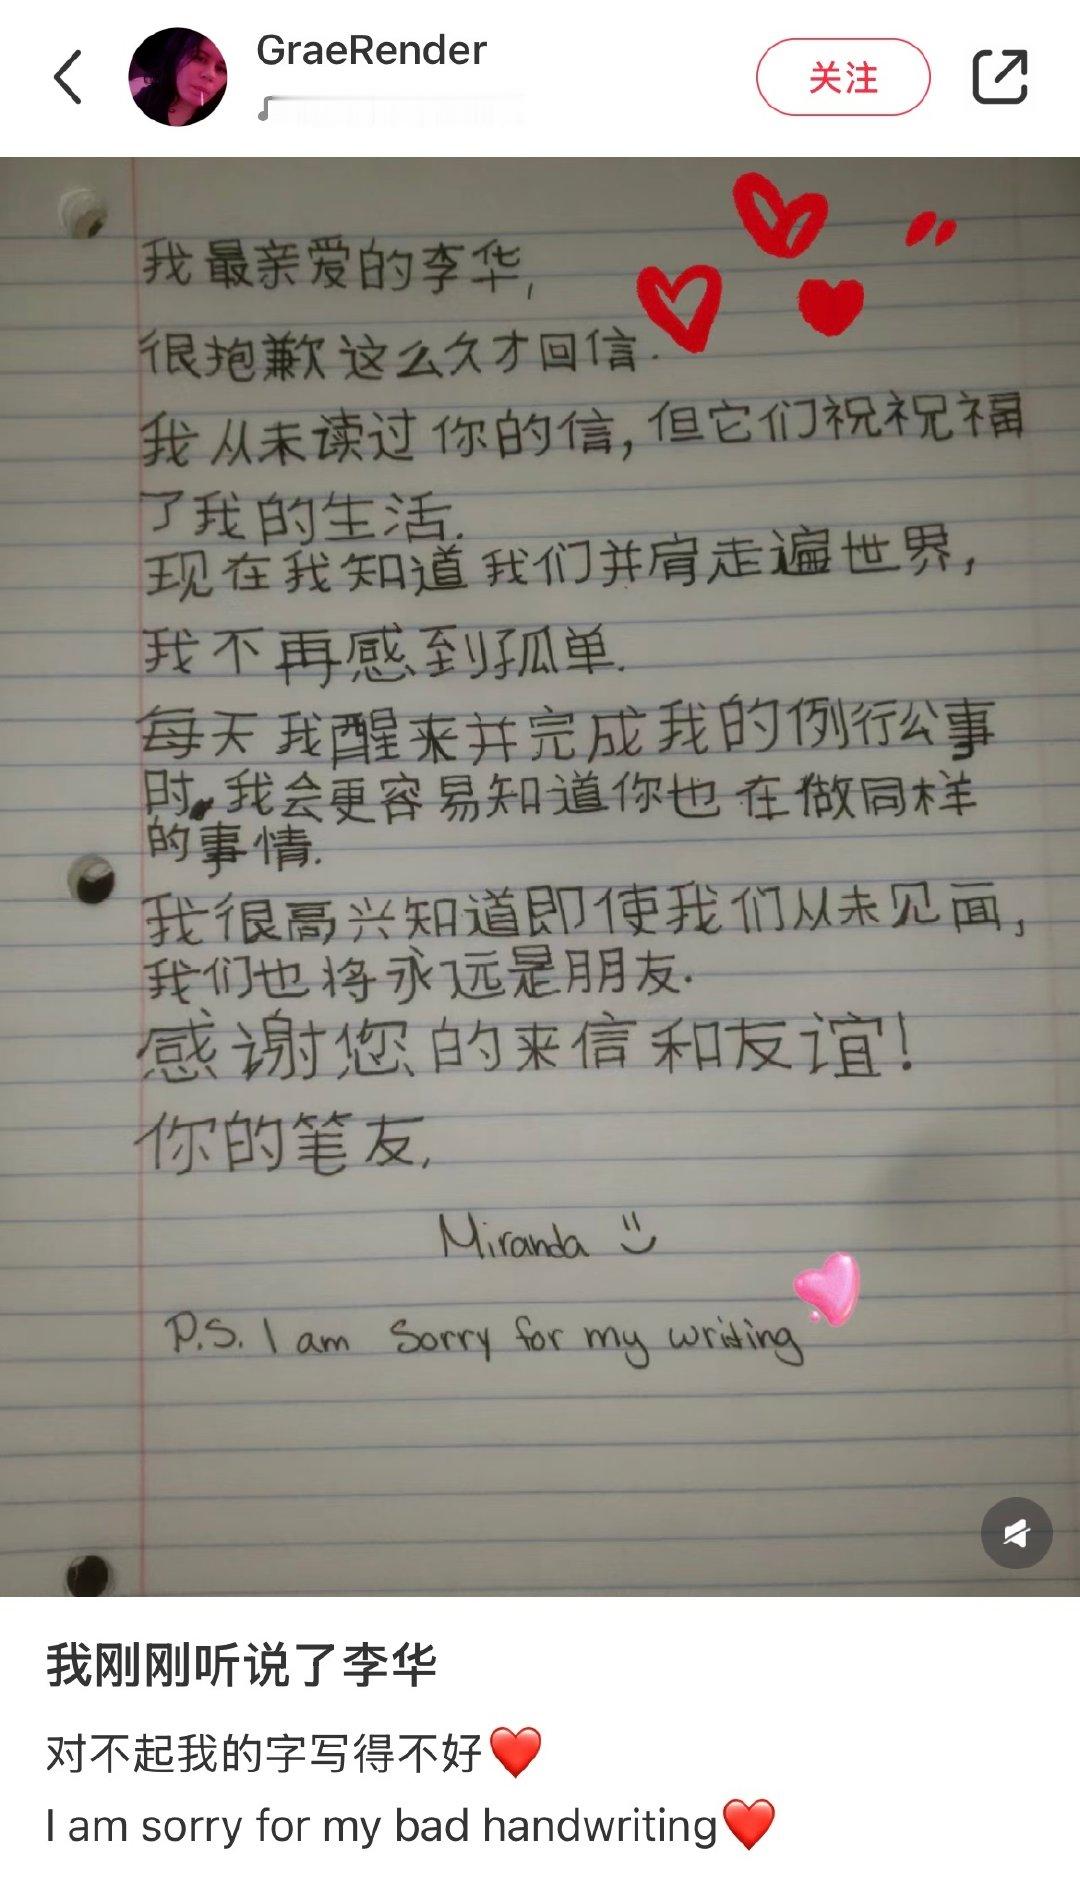 GraeRender
关注
我最亲爱的李华,
很抱歉这么久才回信.
我从未读过你的信,但它们祝祝福
了我的生活.
现在我知道我们并肩走遍世界,
我不再感到孤单.
每天我醒来并完成我的例行公事
时,我会更容易知道你也在做同样
的事情.
我很高兴知道即使我们从未见面,
我们也将永远是朋友.
感谢您的来信和友谊!
你的笔友,
Miranda
P.S. I am sorry for my writing
我刚刚听说了李华
对不起我的字写得不好❤️
I am sorry for my bad handwriting❤️